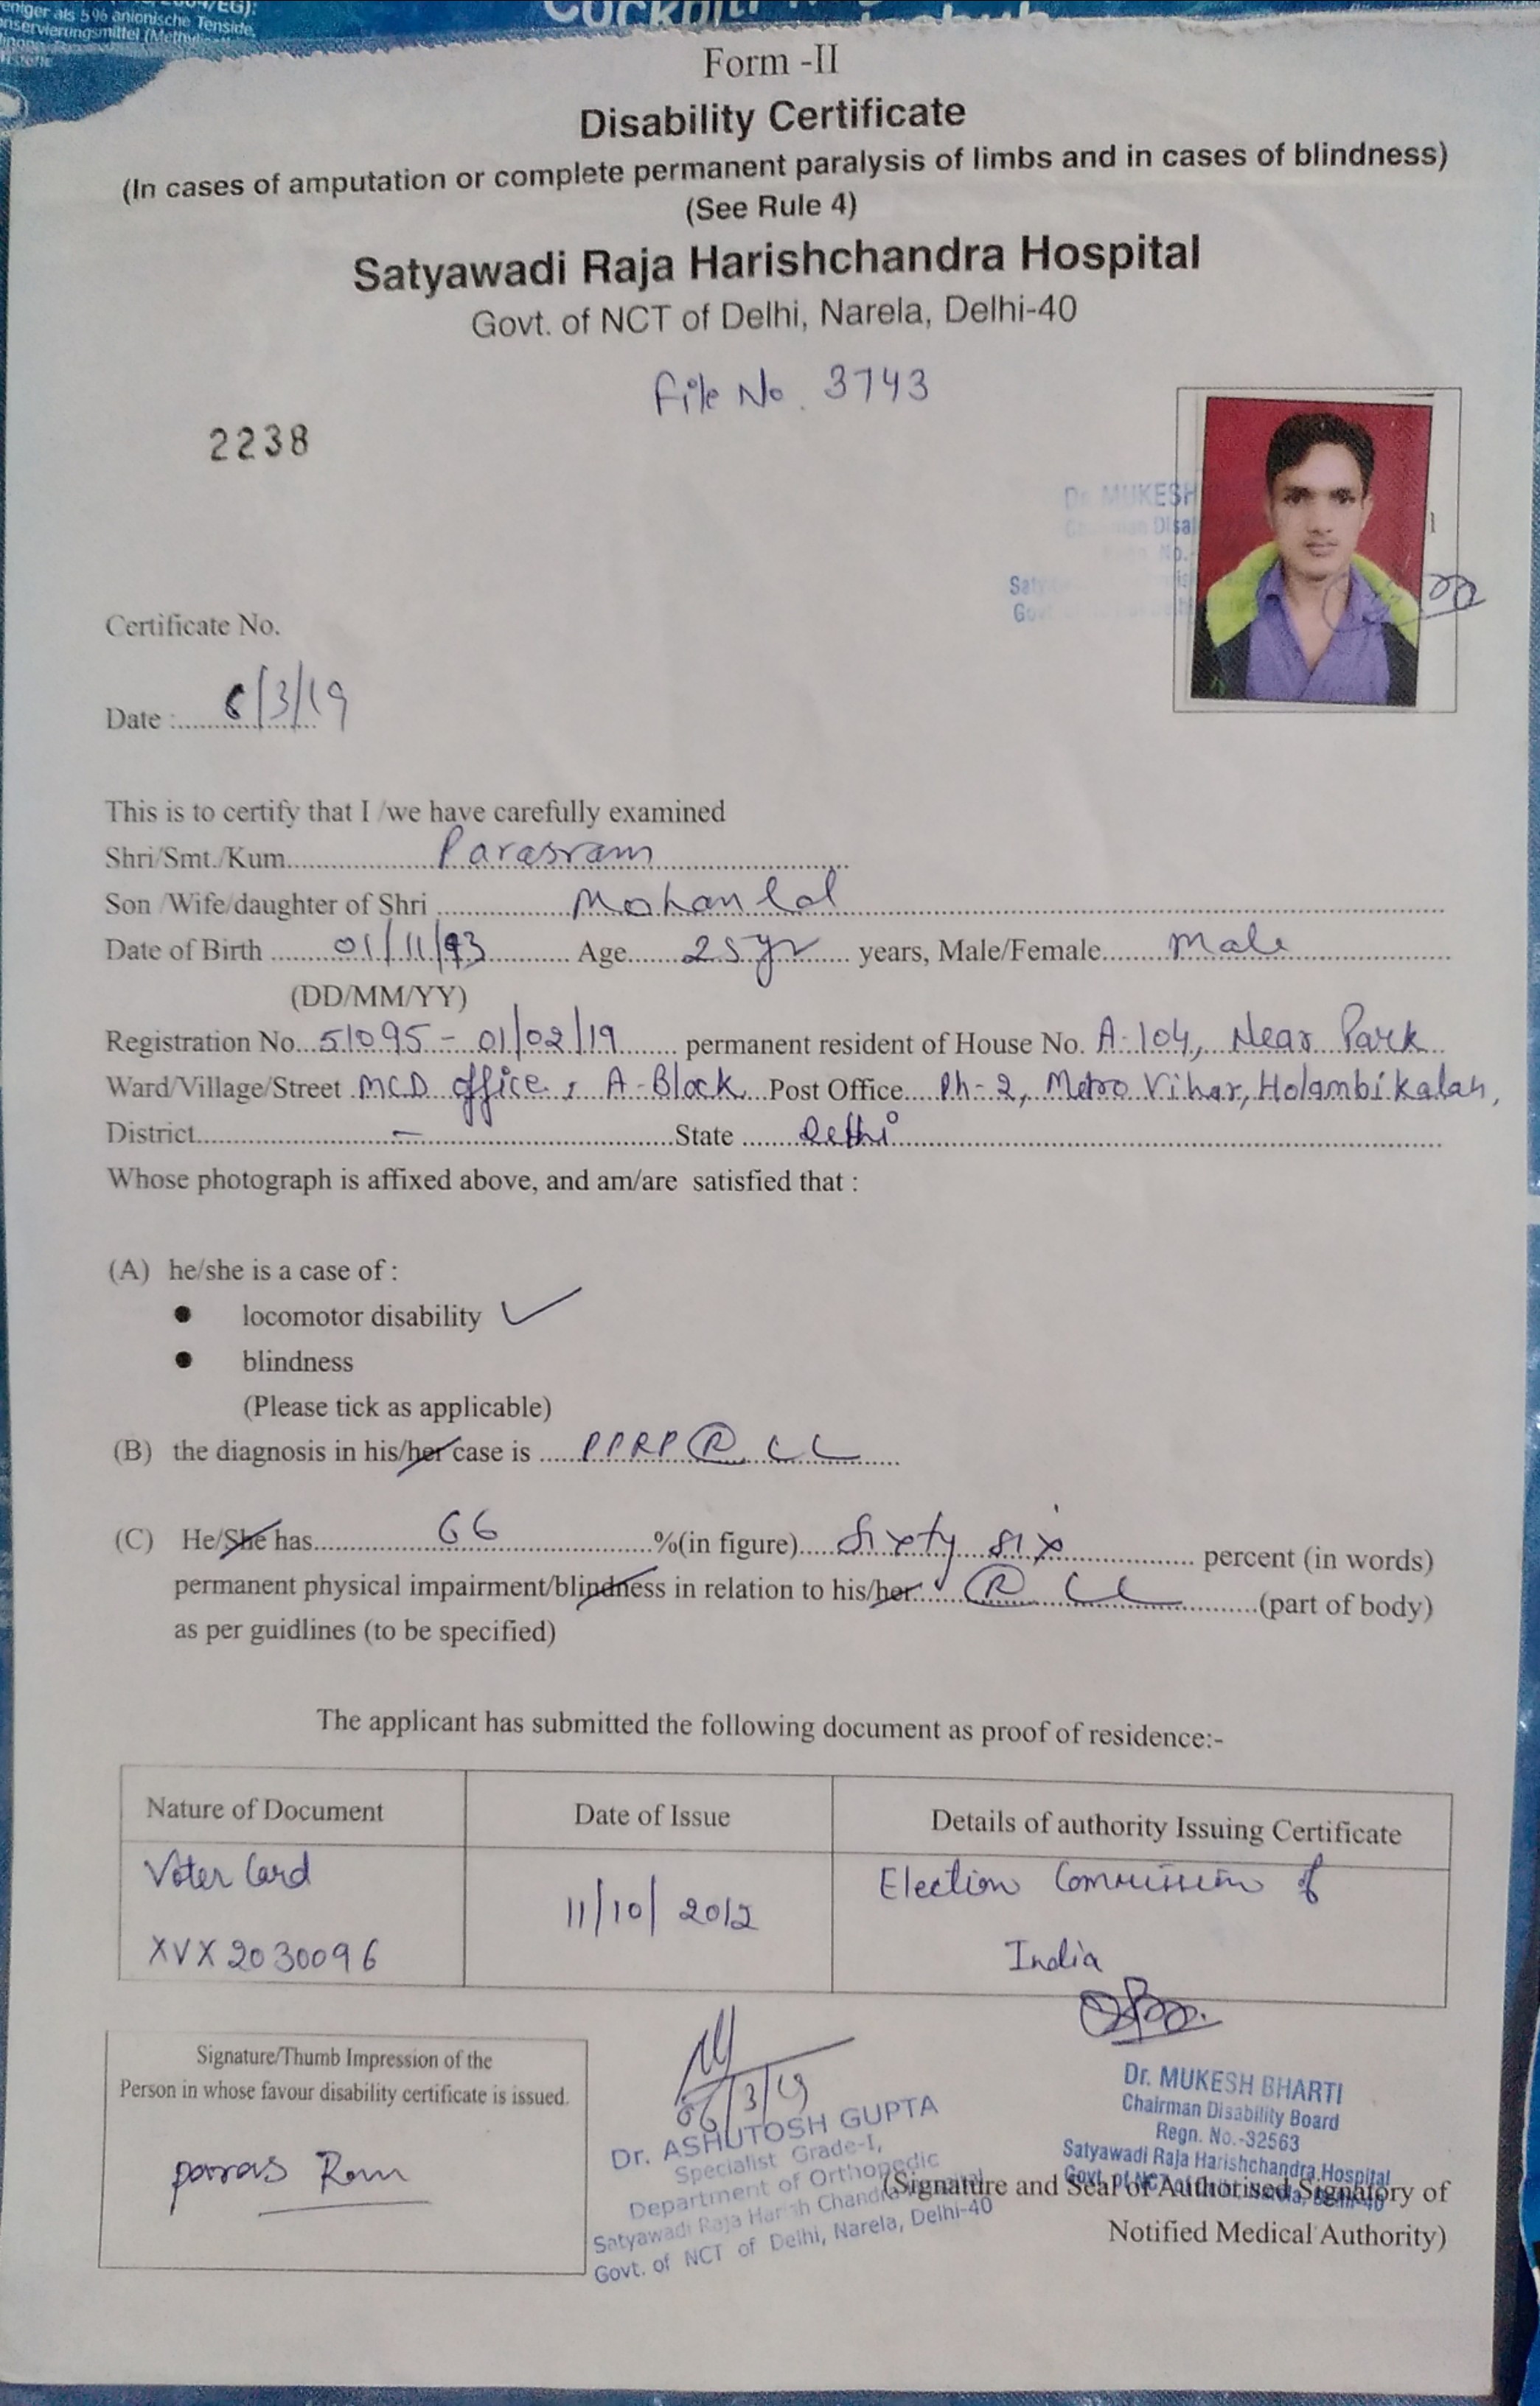 eniger als 5% anionische Tenside,
Form -II
Disability Certificate
(In cases of amputation or complete permanent paralysis of limbs and in cases of blindness)
(See Rule 4)
Satyawadi Raja Harishchandra Hospital
Govt. of NCT of Delhi, Narela, Delhi-40
File No. 3743
2238
Dr. MUKESH
Certificate No.
Date : 6/3/19
This is to certify that I /we have carefully examined
Shri/Smt./Kum. Parasram
Son /Wife/daughter of Shri Mohan lal
Date of Birth 01/11/93 Age 25 yr years, Male/Female Male
(DD/MM/YY)
Registration No. 51095 - 01/02/19 permanent resident of House No. A-104, Near Park
Ward/Village/Street MCD office, A-Block, Post Office Ph-2, Metro Vihar, Holambi kalan,
District - State Delhi
Whose photograph is affixed above, and am/are satisfied that :
(A) he/she is a case of :
● locomotor disability ✓
● blindness
(Please tick as applicable)
(B) the diagnosis in his/her case is PPRP Ⓡ LL
(C) He/She has 66 %(in figure) Sixty six percent (in words)
permanent physical impairment/blindness in relation to his/her Ⓡ LL (part of body)
as per guidlines (to be specified)
The applicant has submitted the following document as proof of residence:-
Nature of Document Date of Issue Details of authority Issuing Certificate
Voter Card 11/10/2012 Election Commission of
XVX2030096 India
Signature/Thumb Impression of the
Person in whose favour disability certificate is issued.
paras Ram
06/3/19
Dr. ASHUTOSH GUPTA
Specialist Grade-I,
Department of Orthopedic
Satyawadi Raja Harish Chandra Hospital
Govt. of NCT of Delhi, Narela, Delhi-40
Dr. MUKESH BHARTI
Chairman Disability Board
Regn. No.-32563
Satyawadi Raja Harishchandra Hospital
Govt. of NCT of Delhi, Narela, Delhi-40
(Signature and Seal of Authorised Signatory of
Notified Medical Authority)